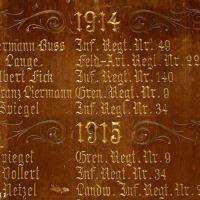 1914
ermann Buss Inf. Regt. Nr. 49
Lange. Feld-Art. Regt. Nr. 22
lbert Fick Inf. Regt. Nr. 140
ranz Biermann Gren. Regt. Nr. 9
Spiegel Inf. Regt. Nr. 34
1915
piegel Gren. Regt. Nr. 9
Vollert Inf. Regt. Nr. 34
Netzel Landw. Inf. Regt. Nr.